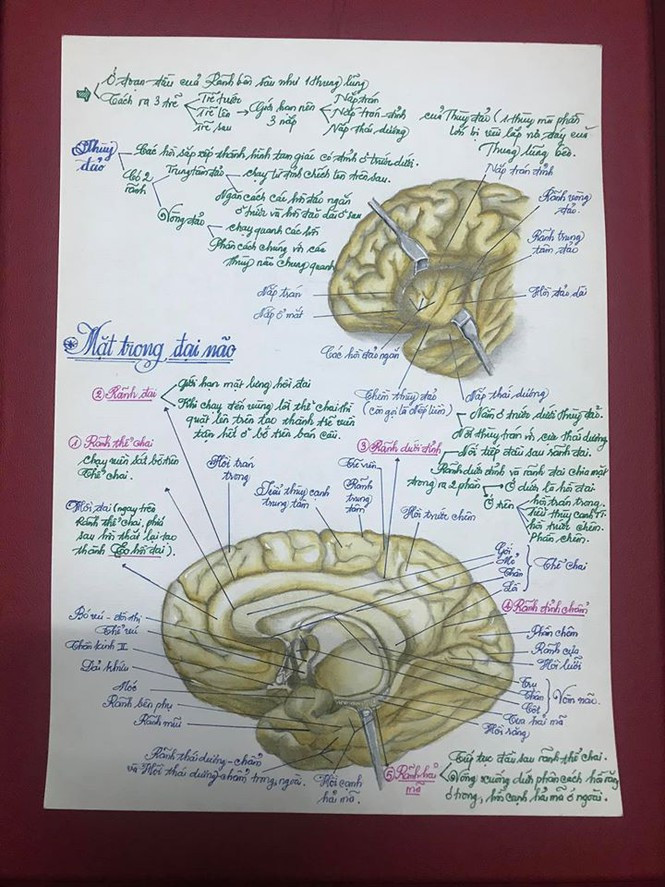 Ở đoạn đầu của Rãnh bên sâu như 1 thung lũng
Tách ra 3 trẽ
Trẽ trước
Trẽ lên
Trẽ sau
Giới hạn nên 3 nắp
Nắp trán
Nắp trán đỉnh
Nắp thái dương
của Thùy đảo (1 thùy mà phần
lớn bị vùi lấp nó đáy của
Thung lũng
Thùy
đảo
Các hồi sắp xếp thành hình tam giác có đỉnh ở trước dưới.
Có 2
rãnh
Trung tâm đảo
chạy từ đỉnh chếch lên trên sau.
Ngăn cách các hồi đảo ngắn
ở trước và hồi đảo dài ở sau
Vòng đảo
chạy quanh các hồi
Phân cách chúng với các
thùy não chung quanh
Nắp trán đỉnh
Rãnh vòng
đảo.
Rãnh trung
tâm đảo
Hồi đảo dài
Nắp trán
Nắp ổ mắt
Các hồi đảo ngắn
Thềm thùy đảo
(còn gọi là Nếp liềm)
Nắp thái dương
Nằm ở trước dưới thùy đảo.
Nối thùy trán với cực thái dương
Mặt trong đại não
② Rãnh đai
Giới hạn mặt lưng hồi đai
Khi chạy đến vùng lồi thể chai thì
quặt lên trên tạo thành trẽ viền
tận hết ở bờ trên bán cầu.
① Rãnh thể chai
chạy viền sát bờ trên
Thể chai.
③ Rãnh dưới đỉnh
Nối tiếp đầu sau rãnh đai.
Rãnh dưới đỉnh và rãnh đai chia mặt
trong ra 2 phần
Ở dưới là hồi đai
Ở trên
hồi trán trong.
tiểu thùy cạnh TT
hồi trước chêm.
Phần chêm.
Hồi đai (ngay trên
Rãnh thể chai, phía
sau hồi thắt lại tạo
thành Eo hồi đai).
Hồi trán
trong
Tiểu thùy cạnh
trung tâm
Trẽ viền
Rãnh
trung
tâm
Hồi trước chêm
Gối
Mỏ
Thân
Lồi
Thể chai
④ Rãnh đỉnh chẩm
Phần chêm
Rãnh cựa
Hồi lưỡi
Trụ
Thân
Cột
Vòm não.
Cựa hải mã
Hồi răng
Bó vú - đồi thị
Thể vú
Thần kinh II
Dải khứu
Móc
Rãnh bên phụ
Rãnh mũi
Rãnh thái dương-chẩm
và Hồi thái dương-chẩm trong, ngoài.
Hồi cạnh
hải mã
⑤ Rãnh hải
mã
Tiếp tục đầu sau rãnh thể chai.
Vòng xuống dưới phân cách hồi răng
ở trong, hồi cạnh hải mã ở ngoài.